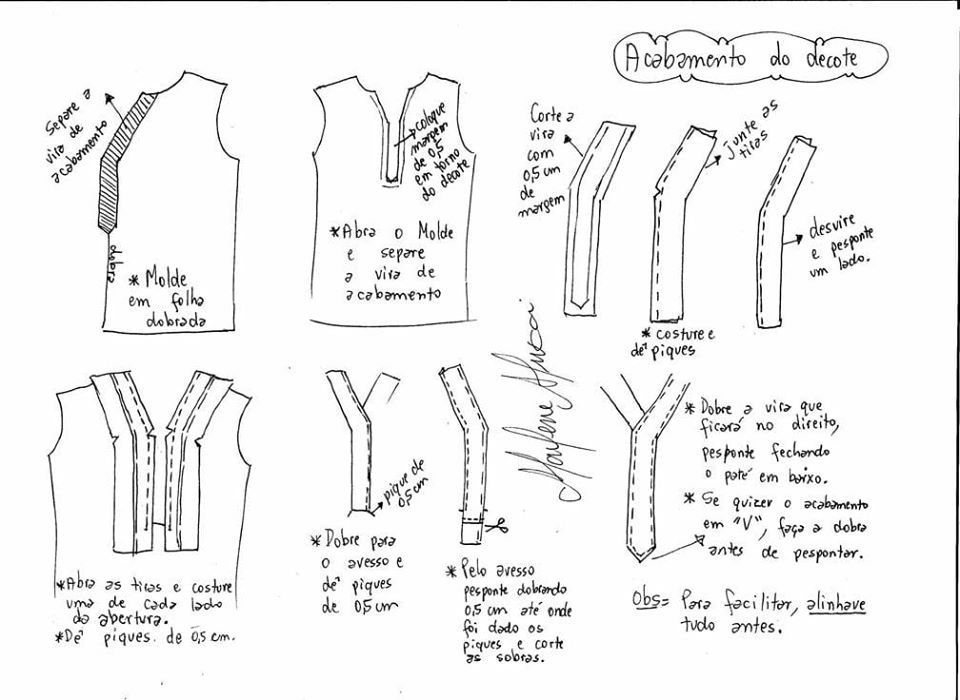 Acabamento do decote
Separe a
vira de
acabamento
dobra
* Molde
em folha
dobrada
coloque
margem
de 0,5
em torno
do decote
* Abra o Molde
e separe
a vira de
acabamento
Corte a
vira
com
0,5 cm
de
margem
Junte as
tiras
* costure e
dê piques
desvire
e pesponte
um lado.
* Abra as tiras e costure
uma de cada lado
da abertura.
* Dê piques de 0,5 cm.
pique de
0,5 cm
* Dobre para
o avesso e
dê piques
de 0,5 cm
* Pelo avesso
pesponte dobrando
0,5 cm até onde
foi dado os
piques e corte
as sobras.
Marlene Mukai
* Dobre a vira que
ficará no direito,
pesponte fechando
o paté em baixo.
* Se quizer o acabamento
em "V", faça a dobra
antes de pespontar.
Obs= Para facilitar, alinhave
tudo antes.